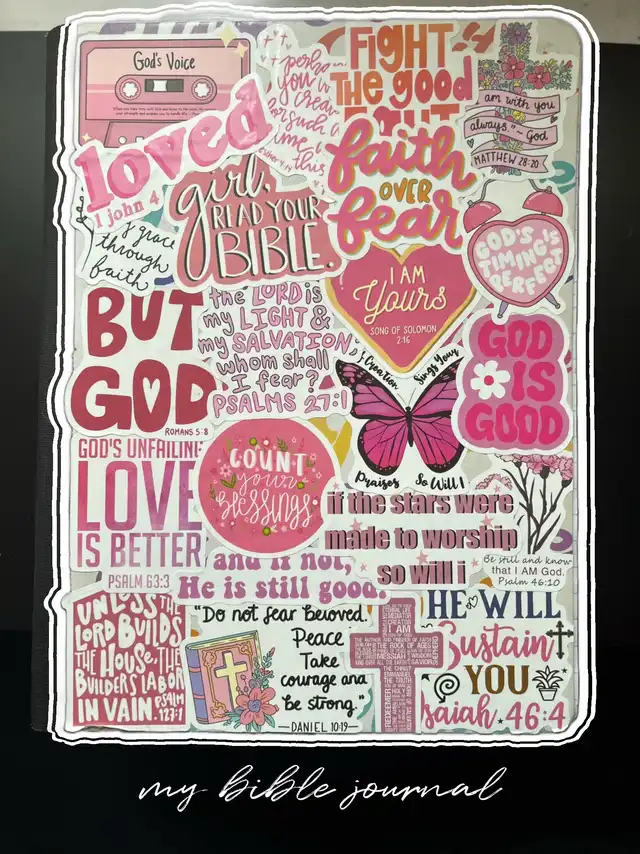 God's Voice
loved
1 john 4
perha
you w
crea
for such
time
this
FIGHT
THE good
faith
OVER
fear
am with you
always."~ God
MATTHEW 28:20
girl,
READ YOUR
BIBLE.
GOD'S
TIMING IS
PERFECT
grace
through
faith
I AM
Yours
SONG OF SOLOMON
2:16
BUT
GOD
ROMANS 5:8
the LORD is
my LIGHT &
my SALVATION
whom shall
I fear?
PSALMS 27:1
Creation
Sings Your
Praises
So Will I
GOD
IS
GOOD
GOD'S UNFAILING
LOVE
IS BETTER
PSALM 63:3
COUNT
your
blessings
if the stars were
made to worship
so will i
and if not,
He is still good.
Be still and know
that I AM God.
Psalm 46:10
UNLESS THE
LORD BUILDS
THE HOUSE, THE
BUILDERS LABOR
IN VAIN. PSALM
127:1
"Do not fear Beloved.
Peace
Take
courage and
be strong."
DANIEL 10:19
HE WILL
Sustain
YOU
Isaiah 46:4
my bible journal